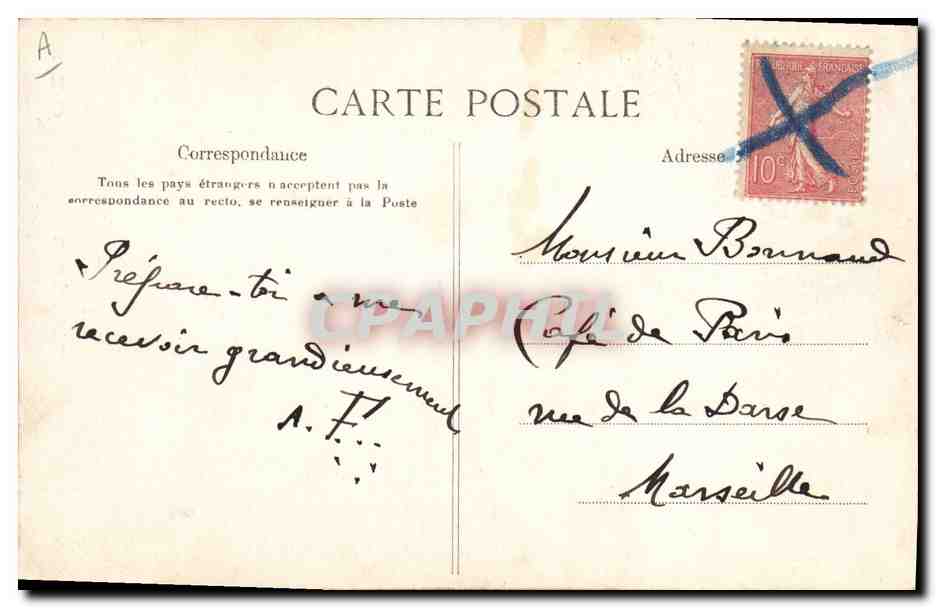 A
CARTE POSTALE
Correspondance
Tous les pays étrangers n'acceptent pas la
correspondance au recto, se renseigner à la Poste
Prépare-toi a me
recevoir grandieusement
A. F...
Adresse
REPUBLIQUE FRANÇAISE
10c
Monsieur Bonnaud
Café de Paris
rue de la Darse
Marseille
CPAPHIL